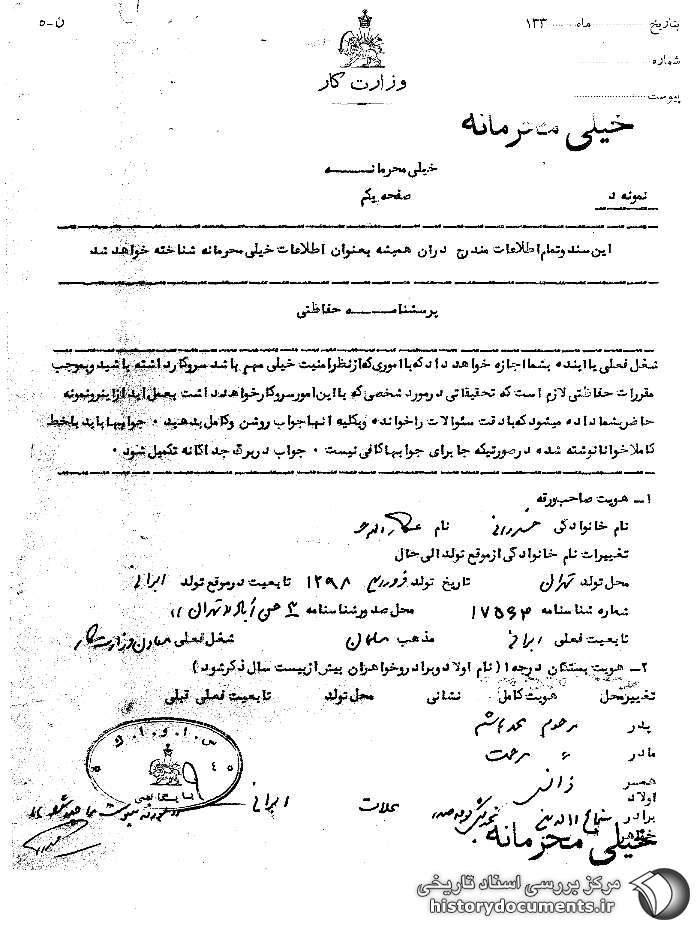 بتاریخ ماه ۱۳۳
ن-۵
شماره
پیوست
وزارت کار
خیلی محرمانه
خیلی محرمانـــه
صفحه یکم
نمونه د
این سند و تمام اطلاعات مندرج در آن همیشه بعنوان اطلاعات خیلی محرمانه شناخته خواهد شد
پرسشنامـــه حفاظتی
شغل فعلی یا آینده بشما اجازه خواهد داد که با اموری که از نظر امنیت خیلی مهم باشد سروکار داشته باشید و بموجب
مقررات حفاظتی لازم است که تحقیقاتی در مورد شخصی که با این امور سروکار خواهد داشت بعمل آید از اینرو نمونه
حاضر بشما داده میشود که با دقت سئوالات را خوانده و بکلیه آنها جواب روشن و کامل بدهید ۰ جوابها باید با خط
کاملا خوانا نوشته شده در صورتیکه جا برای جوابها کافی نیست ۰ جواب در برگ جداگانه تکمیل شود ۰
۱- هویت صاحب ورقه
نام خانوادگی خسروانی نام عطاءاله
تغییرات نام خانوادگی از موقع تولد الی حال
محل تولد تهران تاریخ تولد فروردین ۱۲۹۸ تابعیت در موقع تولد ایرانی
شماره شناسنامه ۱۷۵۶۳ محل صدور شناسنامه تهران
تابعیت فعلی ایرانی مذهب مسلمان شغل فعلی معاون وزارت کار
۲- هویت بستگان درجه ۱ (نام اولاد و برادر و خواهران بیش از بیست سال ذکر شود)
تغییر محل هویت کامل نشانی محل تولد تابعیت فعلی قبلی
پدر مرحوم محمد هاشم
مادر
همسر
اولاد
برادر محلات ایرانی
خواهر
س.ا.و.ا.ک
بایگانی
خیلی محرمانه
مرکز بررسی اسناد تاریخی
historydocuments.ir